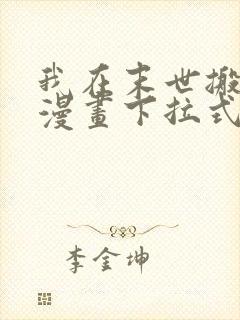 我在末世搬
漫畫下拉式
李金坤